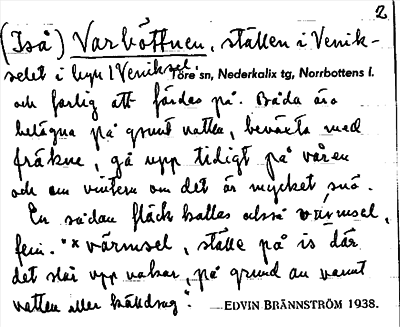 2
(Iså) Varböttnen, ställen i Venik-
selet i byn 1 Veniksel. Töre sn, Nederkalix tg, Norrbottens l.
och farlig att färdas på. Båda äro
belägna på grunt vatten, beväxta med
fräkne, gå upp tidigt på våren
och om vintern om det är mycket snö.
En sådan fläck kallas också värmsel,
fem. "x värmsel, ställe på is där
det slår upp vakar, på grund av varmt
vatten eller källdrag".
EDVIN BRÄNNSTRÖM 1938.